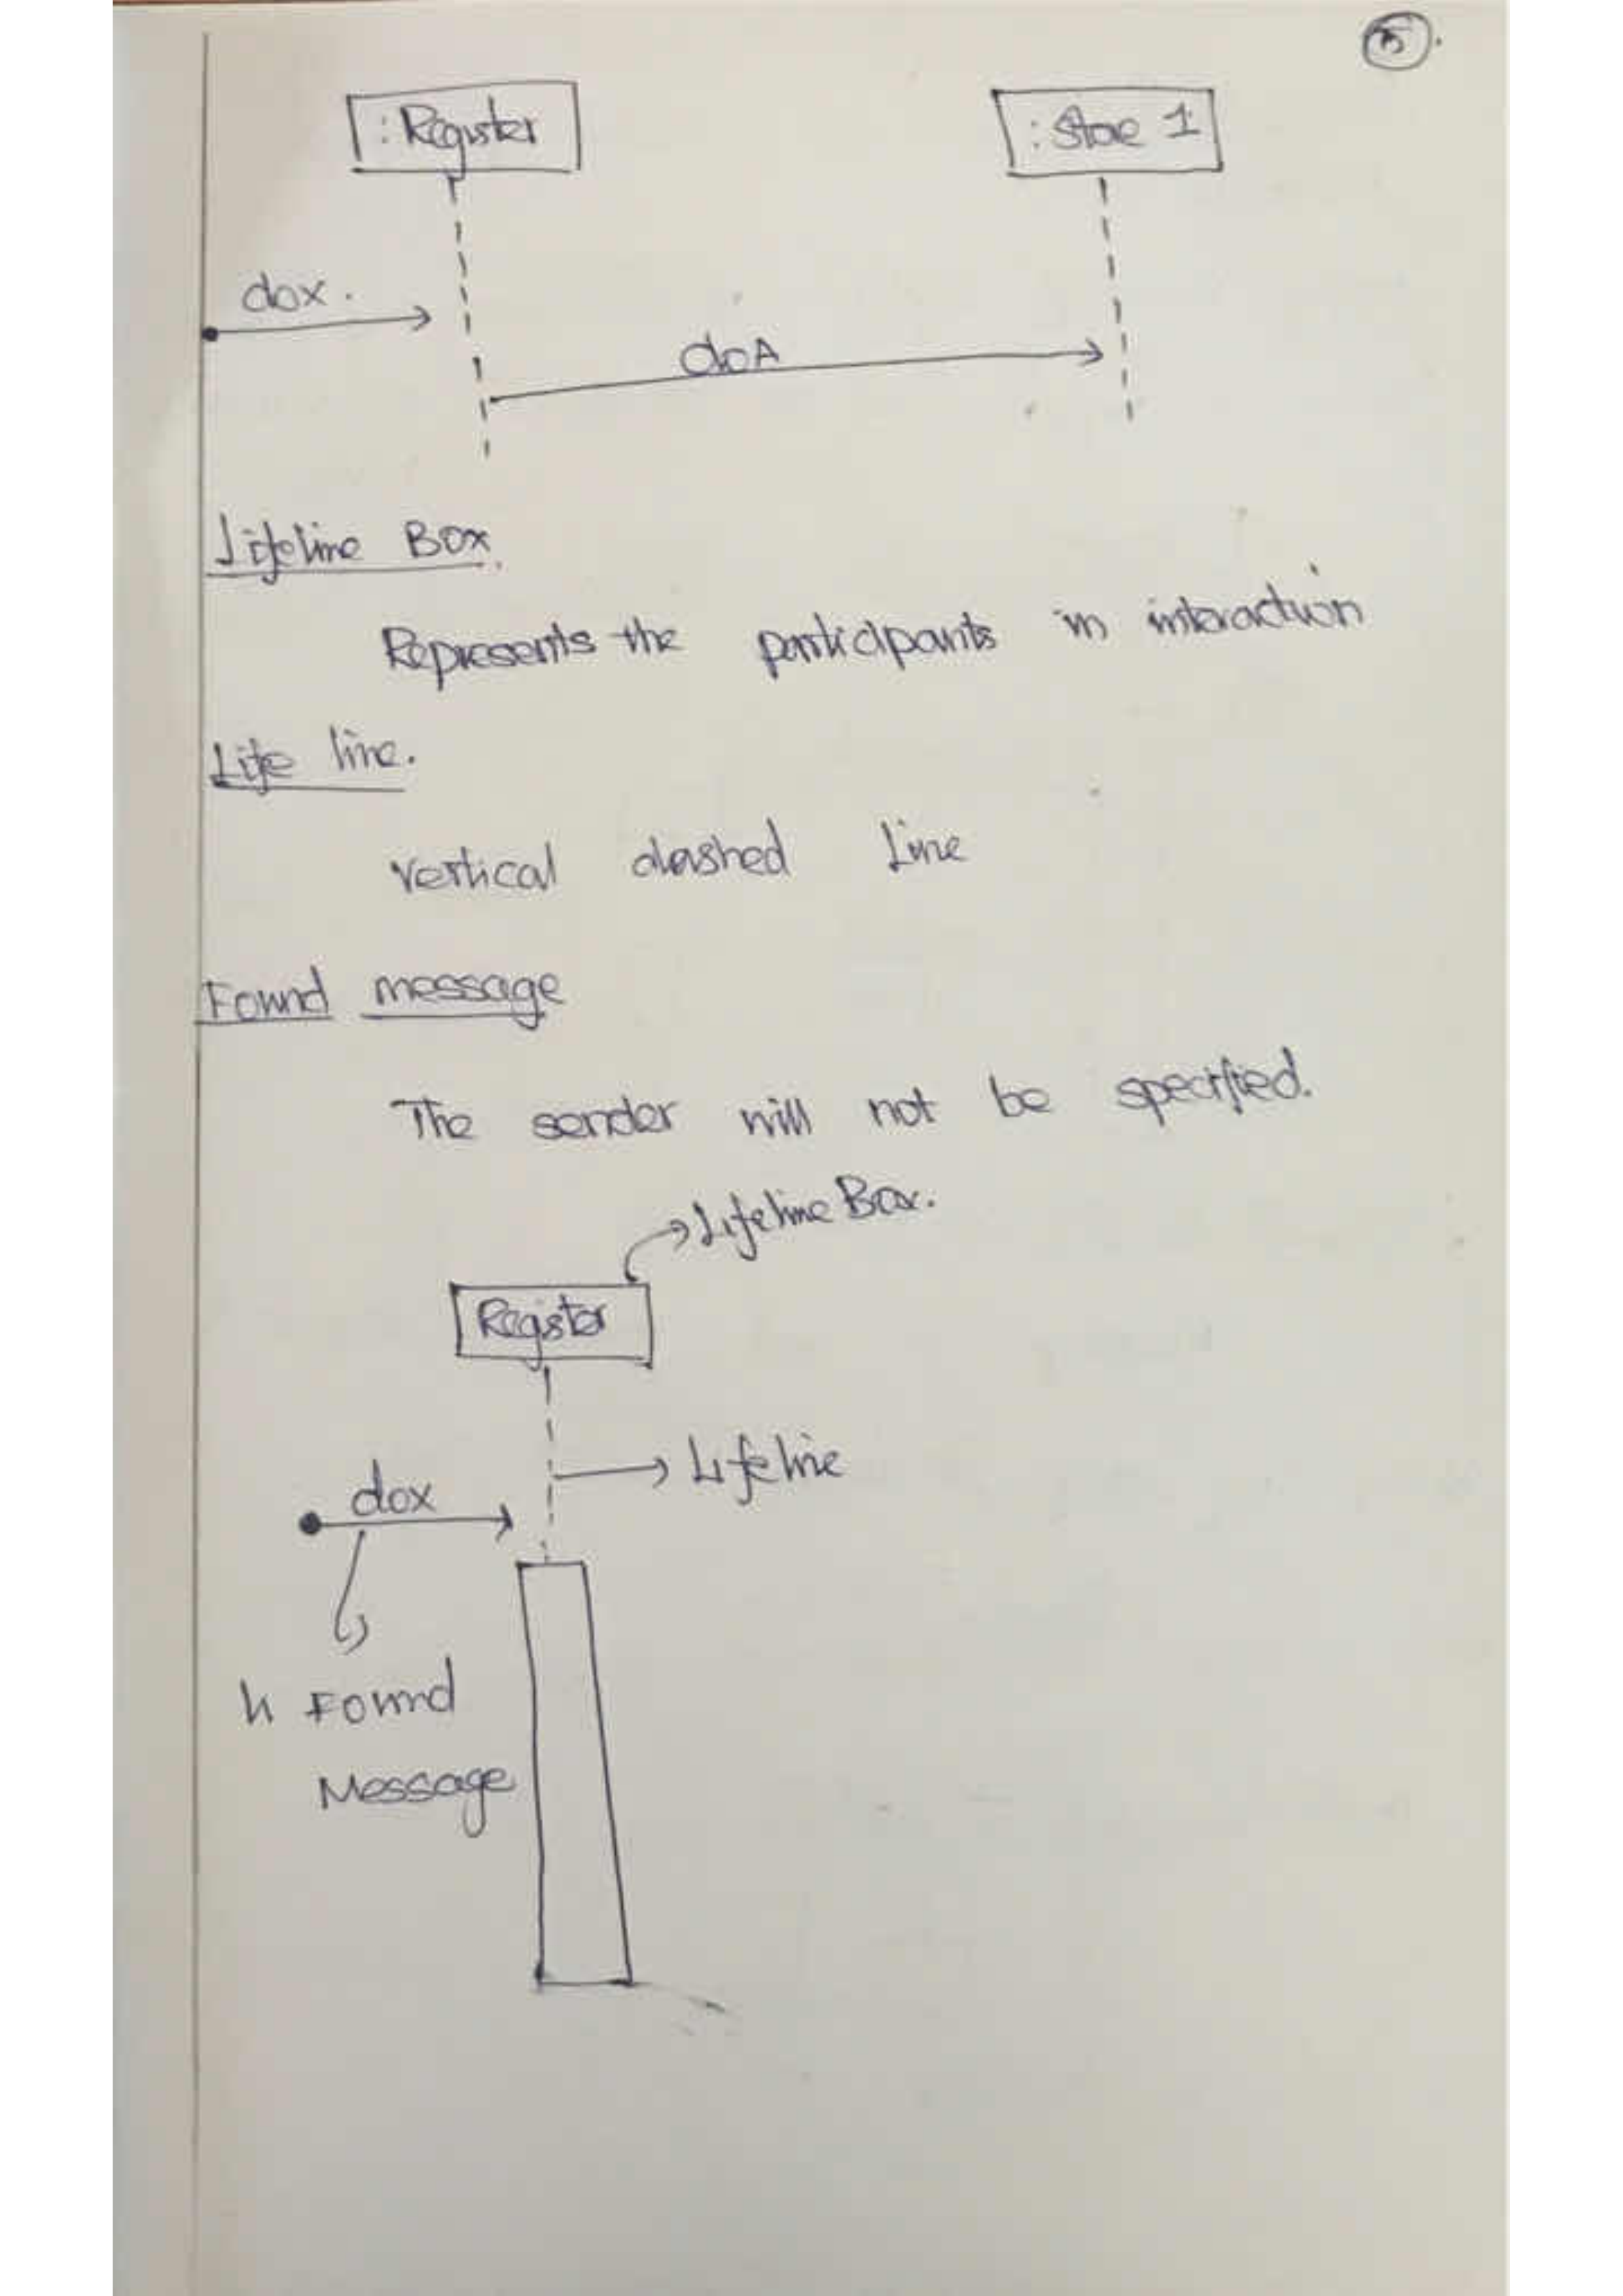 : Register
: Stoe 1
dox.
doA
Lifeline Box.
Represents the participants in interaction
Life line.
vertical dashed Line
Found message
The sender will not be specified.
Lifeline Box.
Register
Lifeline
dox
Found
Message